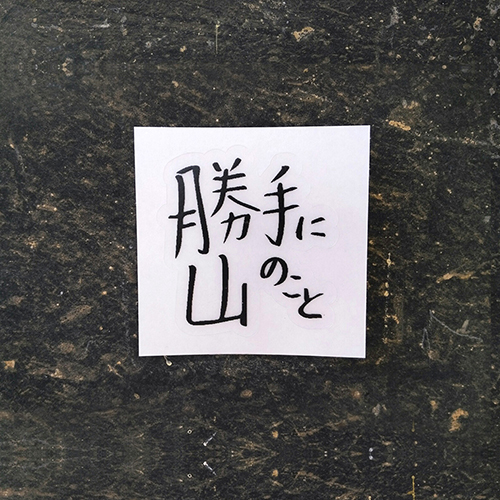 勝手に
山のこと